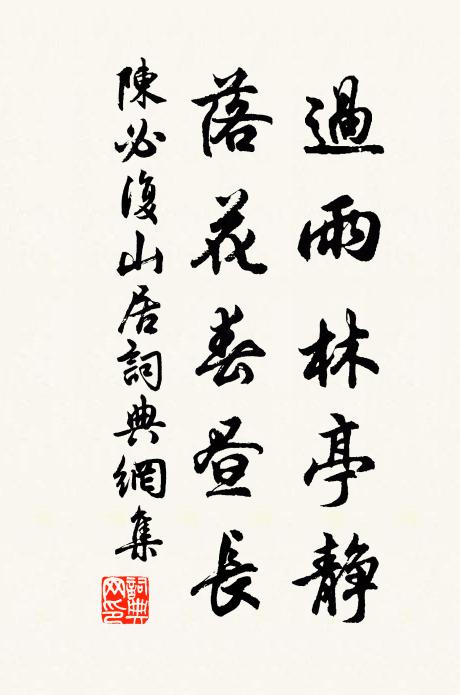 過雨林亭静
落花春昼長
陳必復山居詞典網集
詞典网印